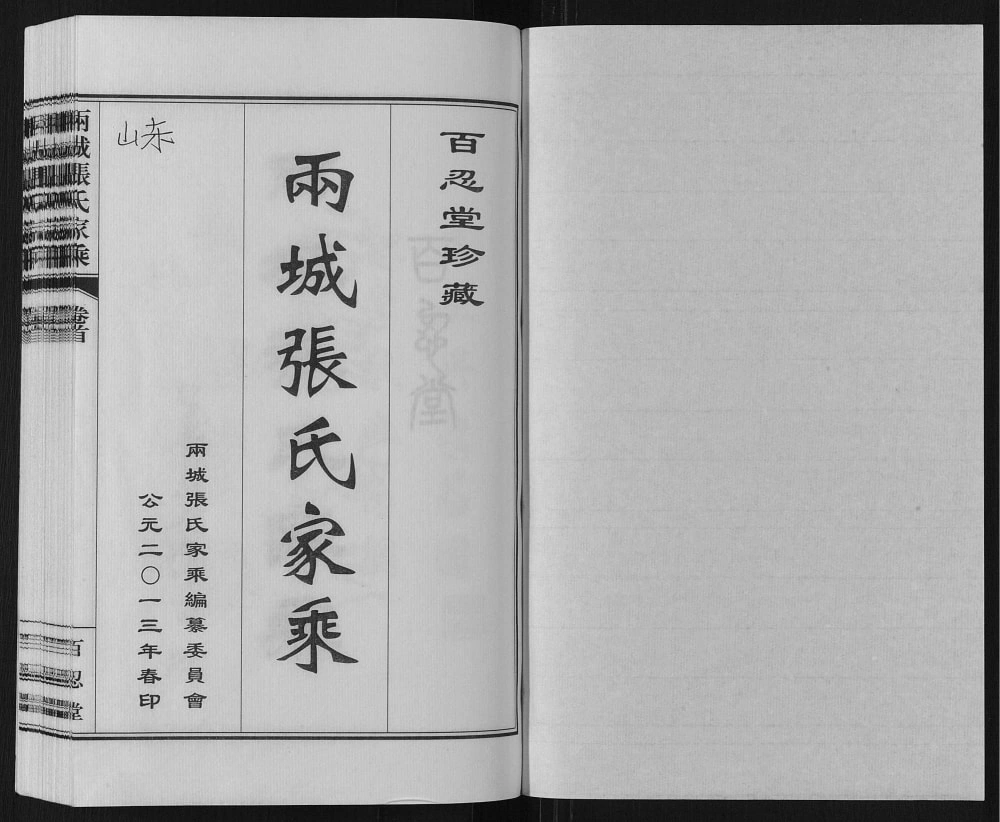 百忍堂珍藏
兩城張氏家乘
兩城張氏家乘編纂委員會
公元二〇一三年春印
山东
兩城張氏家乘
卷首
百忍堂
百忍堂